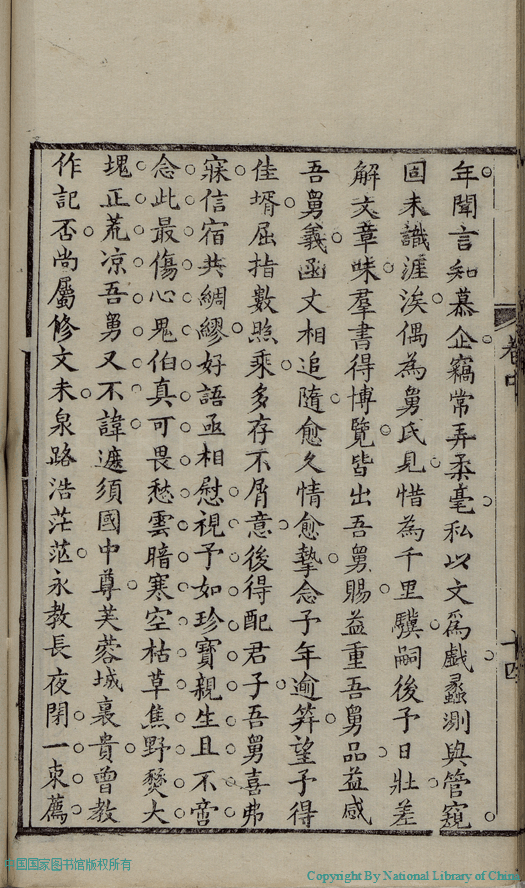 年聞言知慕企竊常弄柔毫私以文爲戲蠡測與管窺
固未識涯涘偶為舅氏見惜為千里驥嗣後予日壯差
解文章味羣書得博覽皆出吾舅賜益重吾舅品益感
吾舅義函丈相追隨愈久情愈摯念予年逾笄望予得
佳壻屈指數煦乘多存不屑意後得配君子吾舅喜弗
寐信宿共綢繆好語亟相慰視予如珍寶親生且不啻
念此最傷心鬼伯真可畏愁雲暗寒空枯草焦野燹大
塊正荒凉吾舅又不諱遽須國中尊芙蓉城裏貴曾教
作記否尚屬修文未泉路浩茫茫永教長夜閉一束薦
卷中
十四
中国国家图书馆版权所有
Copyright By National Library of China